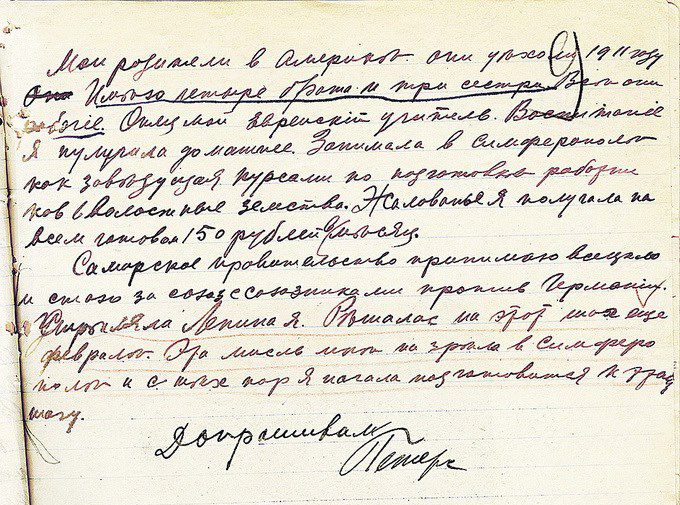 Мои родители в Америке. Они уехали в 1911 году
Имею четыре брата и три сестры. Все они
рабочіе. Отец мой еврейскій учитель. Воспитаніе
я пулучала домашнее. Занимала в Симферополе
как заведующая курсами по подготовке работни
ков в Волостные земства. Жалованье я получала на
всем готовом 150 рублей в месяц.
Самарское правительство принимаю всецело
и стою за союз с союзниками против Германіи.
Стреляла в Ленина я. Решалас на этот шаг еще
феврале. Эта мысль мне назрела в Симферо
поле и с тех пор я начала подготовится к этому
шагу.
Допрашивал
Петерс